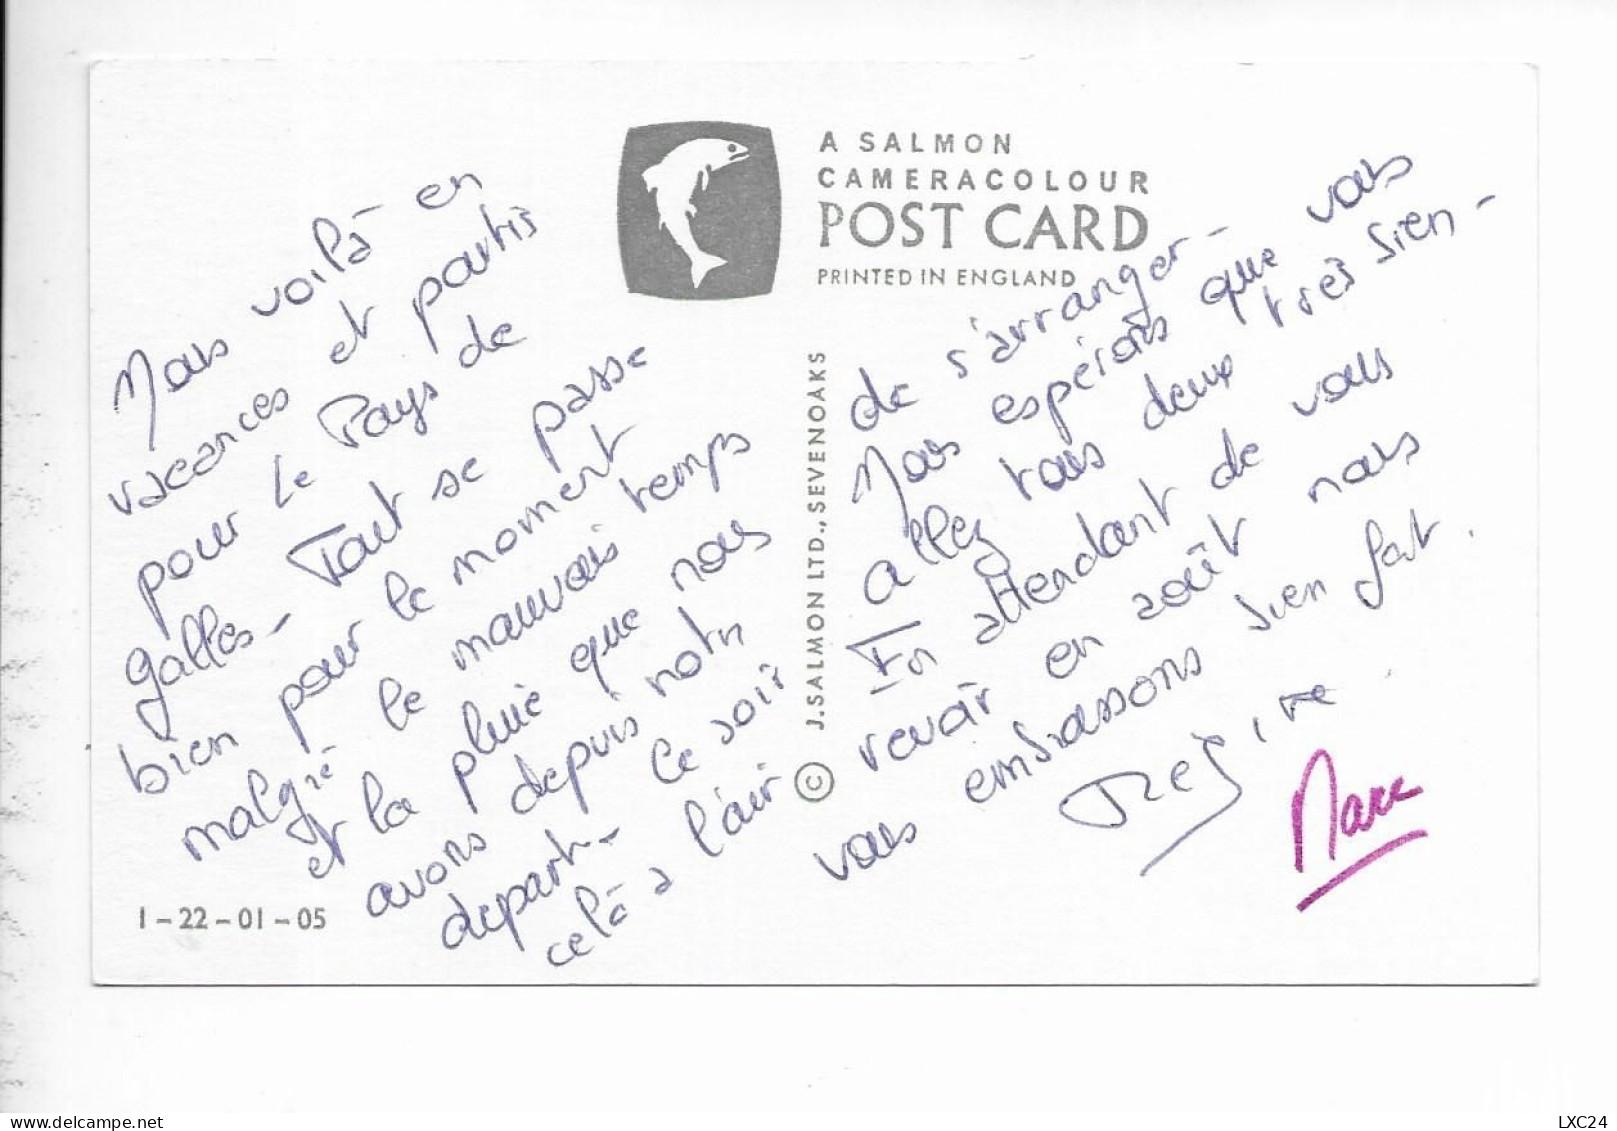 A SALMON
CAMERACOLOUR
POST CARD
PRINTED IN ENGLAND
Nous voilà en
vacances et partis
pour le Pays de
Galles - Tout se passe
bien pour le moment
malgré le mauvais temps
et la pluie que nous
avons depuis notre
depart - Ce soir
celà a l'air
de s'arranger -
Nous espérons que vous
allez tous deux très bien -
En attendant de vous
revoir en août nous
vous embrassons bien fort.
Régine
Marc
J. SALMON LTD., SEVENOAKS ©
1-22-01-05
LXC24